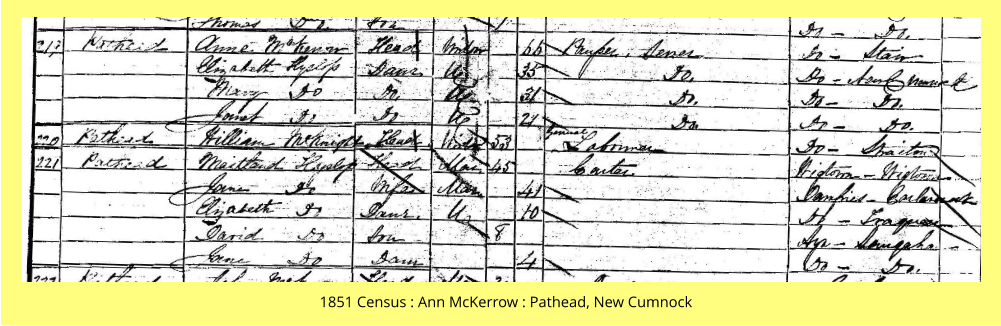 Thomas Do Son Do - Do.
219 Pathead Anne McKerrow Head Widow 66 Pauper, Sewer Do - Stair
Elizabeth Hyslop Daur U 35 Do. Do - New Cumnock
Mary Do Do U 31 Do. Do - Do.
Janet Do Do U 21 Do. Do - Do.
220 Pathead William McKnight Head Widr 53 General Labourer Do - Straiton
221 Pathead Maitland Hyslop Head Mar 45 Carter Wigtown - Wigtown
Jane Do Wife Mar 41 Dumfries -
Elizabeth Do Daur. U 10 Do - Troqueer
David Do Son 8 Ayr -
Jane Do Daur 4 Do - Do.
Pathead
1851 Census : Ann McKerrow : Pathead, New Cumnock